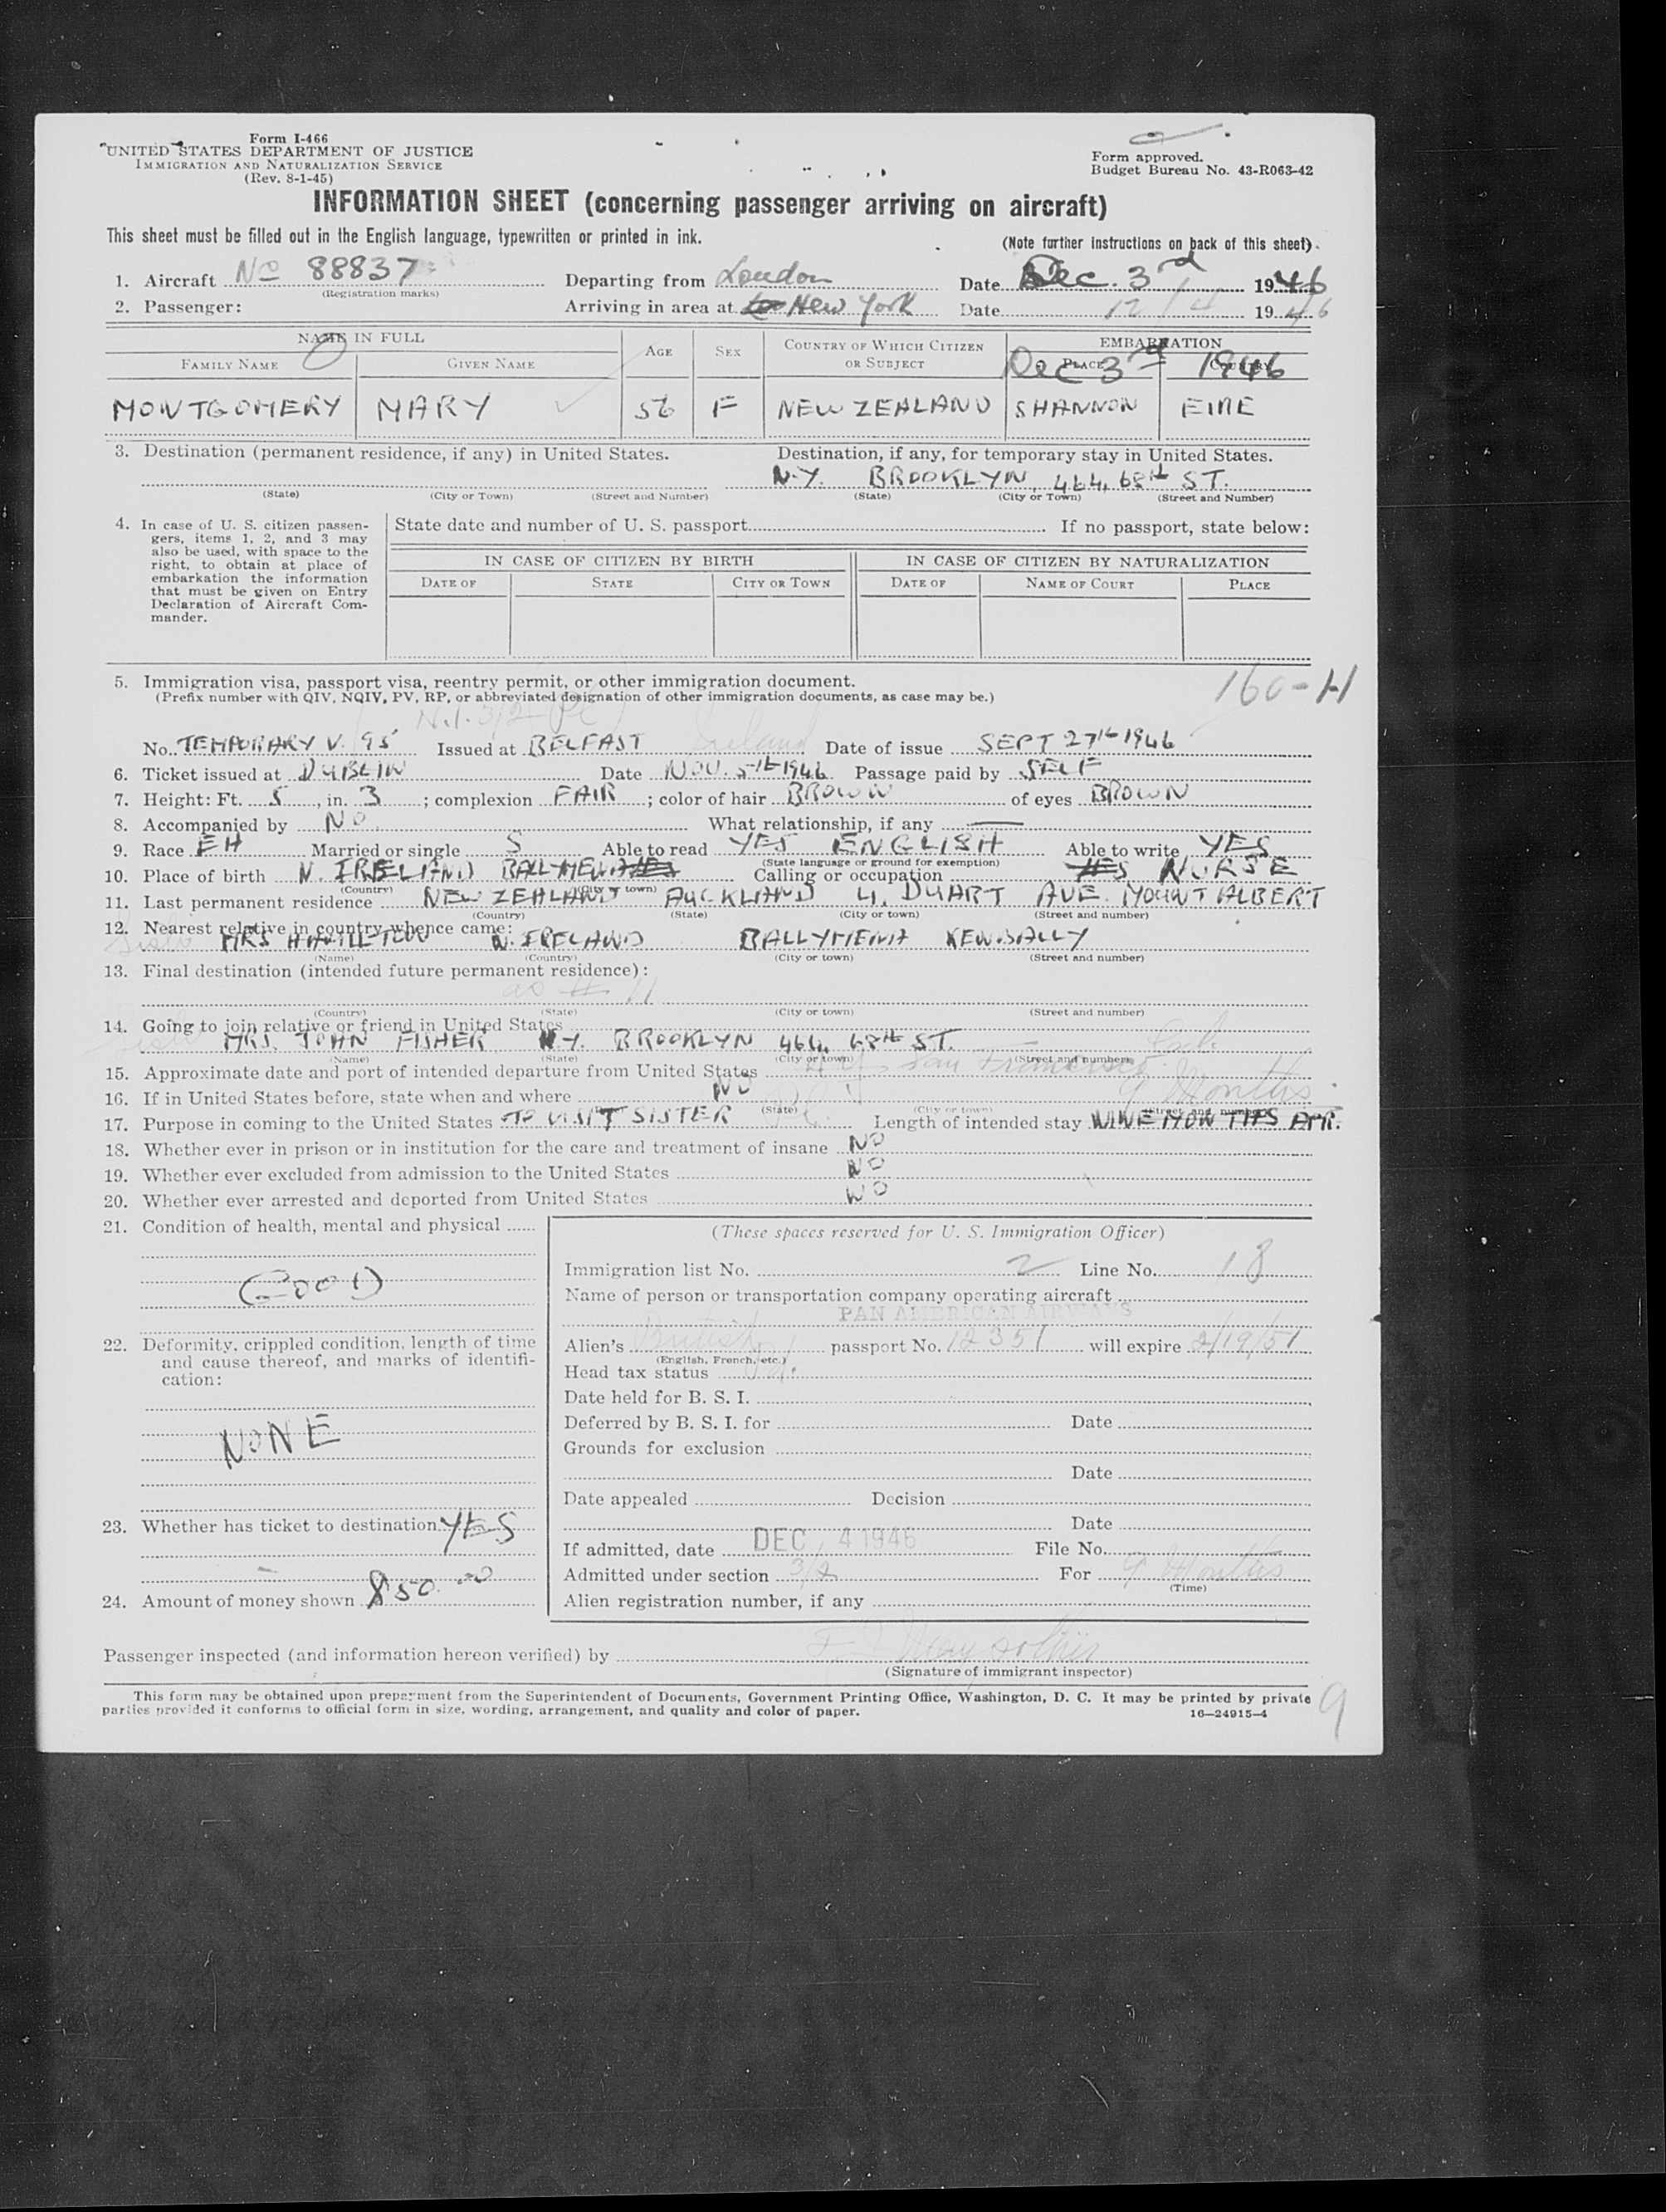 Form I-466
UNITED STATES DEPARTMENT OF JUSTICE
IMMIGRATION AND NATURALIZATION SERVICE
(Rev. 8-1-45)
Form approved.
Budget Bureau No. 43-R063-42
INFORMATION SHEET (concerning passenger arriving on aircraft)
This sheet must be filled out in the English language, typewritten or printed in ink.
(Note further instructions on back of this sheet)
1. Aircraft No 88837 Departing from London Date Dec. 3rd 1946
(Registration marks)
2. Passenger: Arriving in area at New York Date 12/4 1946
NAME IN FULL AGE SEX COUNTRY OF WHICH CITIZEN OR SUBJECT EMBARKATION
FAMILY NAME GIVEN NAME PLACE COUNTRY
Dec 3rd 1946
MONTGOMERY MARY 56 F NEW ZEALAND SHANNON EIRE
3. Destination (permanent residence, if any) in United States. Destination, if any, for temporary stay in United States.
N.Y. BROOKLYN, 464, 68th ST.
(State) (City or Town) (Street and Number) (State) (City or Town) (Street and Number)
4. In case of U. S. citizen passengers, items 1, 2, and 3 may also be used, with space to the right, to obtain at place of embarkation the information that must be given on Entry Declaration of Aircraft Commander.
State date and number of U. S. passport If no passport, state below:
IN CASE OF CITIZEN BY BIRTH IN CASE OF CITIZEN BY NATURALIZATION
DATE OF STATE CITY OR TOWN DATE OF NAME OF COURT PLACE
5. Immigration visa, passport visa, reentry permit, or other immigration document.
160-H
(Prefix number with QIV, NQIV, PV, RP, or abbreviated designation of other immigration documents, as case may be.)
No. TEMPORARY V. 95 Issued at BELFAST Ireland Date of issue SEPT 27th 1946
6. Ticket issued at DUBLIN Date NOV. 5th 1946 Passage paid by SELF
7. Height: Ft. 5, in. 3; complexion FAIR; color of hair BROWN of eyes BROWN
8. Accompanied by NO. What relationship, if any —
9. Race EH Married or single S Able to read YES ENGLISH Able to write YES
(State language or ground for exemption)
10. Place of birth N. IRELAND BALLYMENA Calling or occupation NURSE
(Country) (City or town)
11. Last permanent residence NEW ZEALAND AUCKLAND 4, DUART AVE. MOUNT ALBERT
(Country) (State) (City or town) (Street and number)
12. Nearest relative in country whence came:
MRS HAMILTON N. IRELAND BALLYMENA KENBALLY
(Name) (Country) (City or town) (Street and number)
13. Final destination (intended future permanent residence):
as # 11
(Country) (State) (City or town) (Street and number)
14. Going to join relative or friend in United States
MRS. JOHN FISHER N.Y. BROOKLYN 464, 68th ST.
(Name) (State) (City or town) (Street and number)
15. Approximate date and port of intended departure from United States San Francisco 9 Months
16. If in United States before, state when and where NO
(State) (City or town) (Street and number)
17. Purpose in coming to the United States TO VISIT SISTER Length of intended stay NINE MONTHS APR.
18. Whether ever in prison or in institution for the care and treatment of insane NO
19. Whether ever excluded from admission to the United States NO
20. Whether ever arrested and deported from United States NO
21. Condition of health, mental and physical
GOOD
22. Deformity, crippled condition, length of time and cause thereof, and marks of identification:
NONE
23. Whether has ticket to destination YES
24. Amount of money shown $50.00
(These spaces reserved for U. S. Immigration Officer)
Immigration list No. 2 Line No. 18
Name of person or transportation company operating aircraft
PAN AMERICAN AIRWAYS
Alien's British passport No. 12351 will expire 2/19/51
(English, French, etc.)
Head tax status
Date held for B. S. I.
Deferred by B. S. I. for Date
Grounds for exclusion
Date
Date appealed Decision
Date
If admitted, date DEC 4 1946 File No.
Admitted under section 3/2 For 9 Months
(Time)
Alien registration number, if any
Passenger inspected (and information hereon verified) by
(Signature of immigrant inspector)
This form may be obtained upon prepayment from the Superintendent of Documents, Government Printing Office, Washington, D. C. It may be printed by private
parties provided it conforms to official form in size, wording, arrangement, and quality and color of paper.
16—24915-4
9